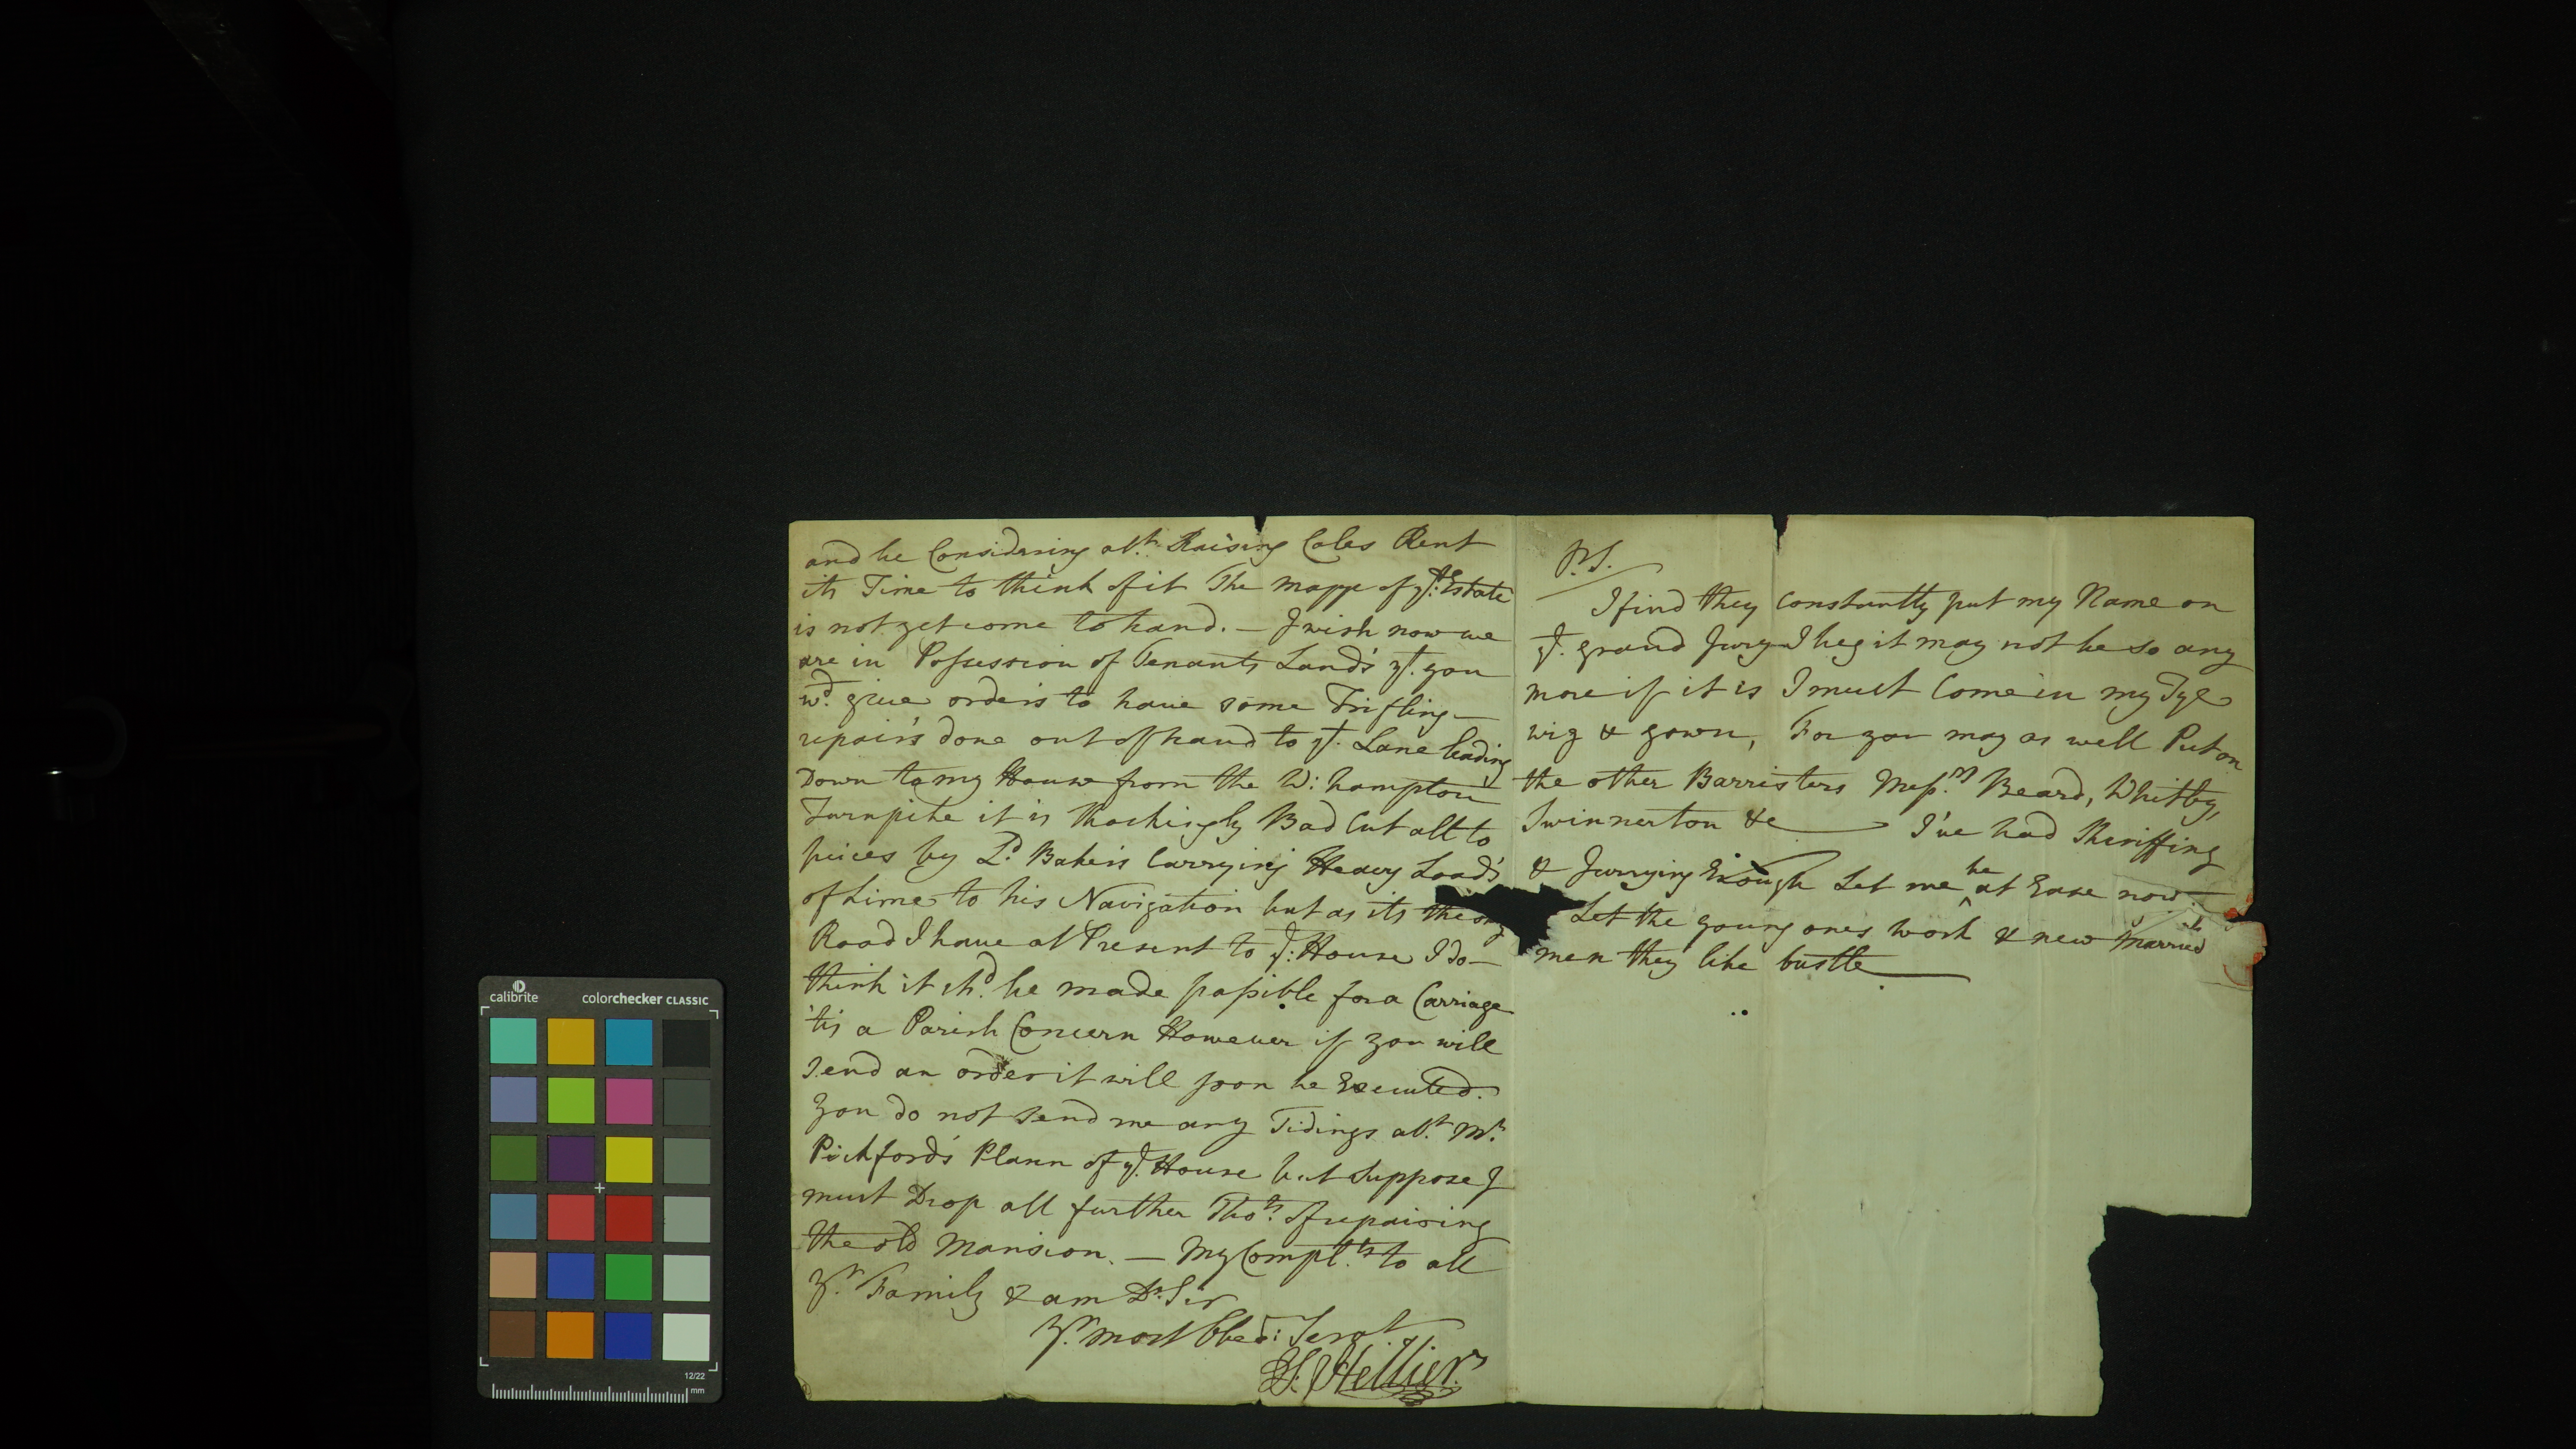 and be Considering abt. Raising Coles Rent
its Time to think of it The mappe of ye. Estate
is not yet come to hand. — I wish now we
are in Possession of Tenants Land's yt. you
wd. give orders to have some Trifling —
repairs done out of hand to ye. Lane leading
Down to my House from the W: hampton
Turnpike it is shockingly Bad Cut all to
peices by Ld. Baker's Carrying Heavy Load's
of Lime to his Navigation but as its the only
Road I have at Present to ye: House I do —
think it shd. be made passible for a Carriage
'tis a Parish Concern However if you will
Send an order it will soon be Executed.
You do not send me any Tidings abt. Mr.
Pickford's Plann of ye. House but suppose I
must Drop all further Thots. of repairing
the old Mansion. — My Complts. to all
Yr. Family & am Dr. Sir
Yr. most Obed: Servt
T: Hellier
P.S.
I find they constantly put my Name on
ye. grand Jury I beg it may not be so any
more if it is I must Come in my Tye
wig & gown, For you may as well Put on
the other Barristers Messrs. Beard, Whitby,
Swinnerton &c — I've had Sheriffing
& Jurrying Enough Let me be at Ease now.
Let the young ones work & new married
men they like bustle
calibrite
colorchecker CLASSIC
12/22
mm